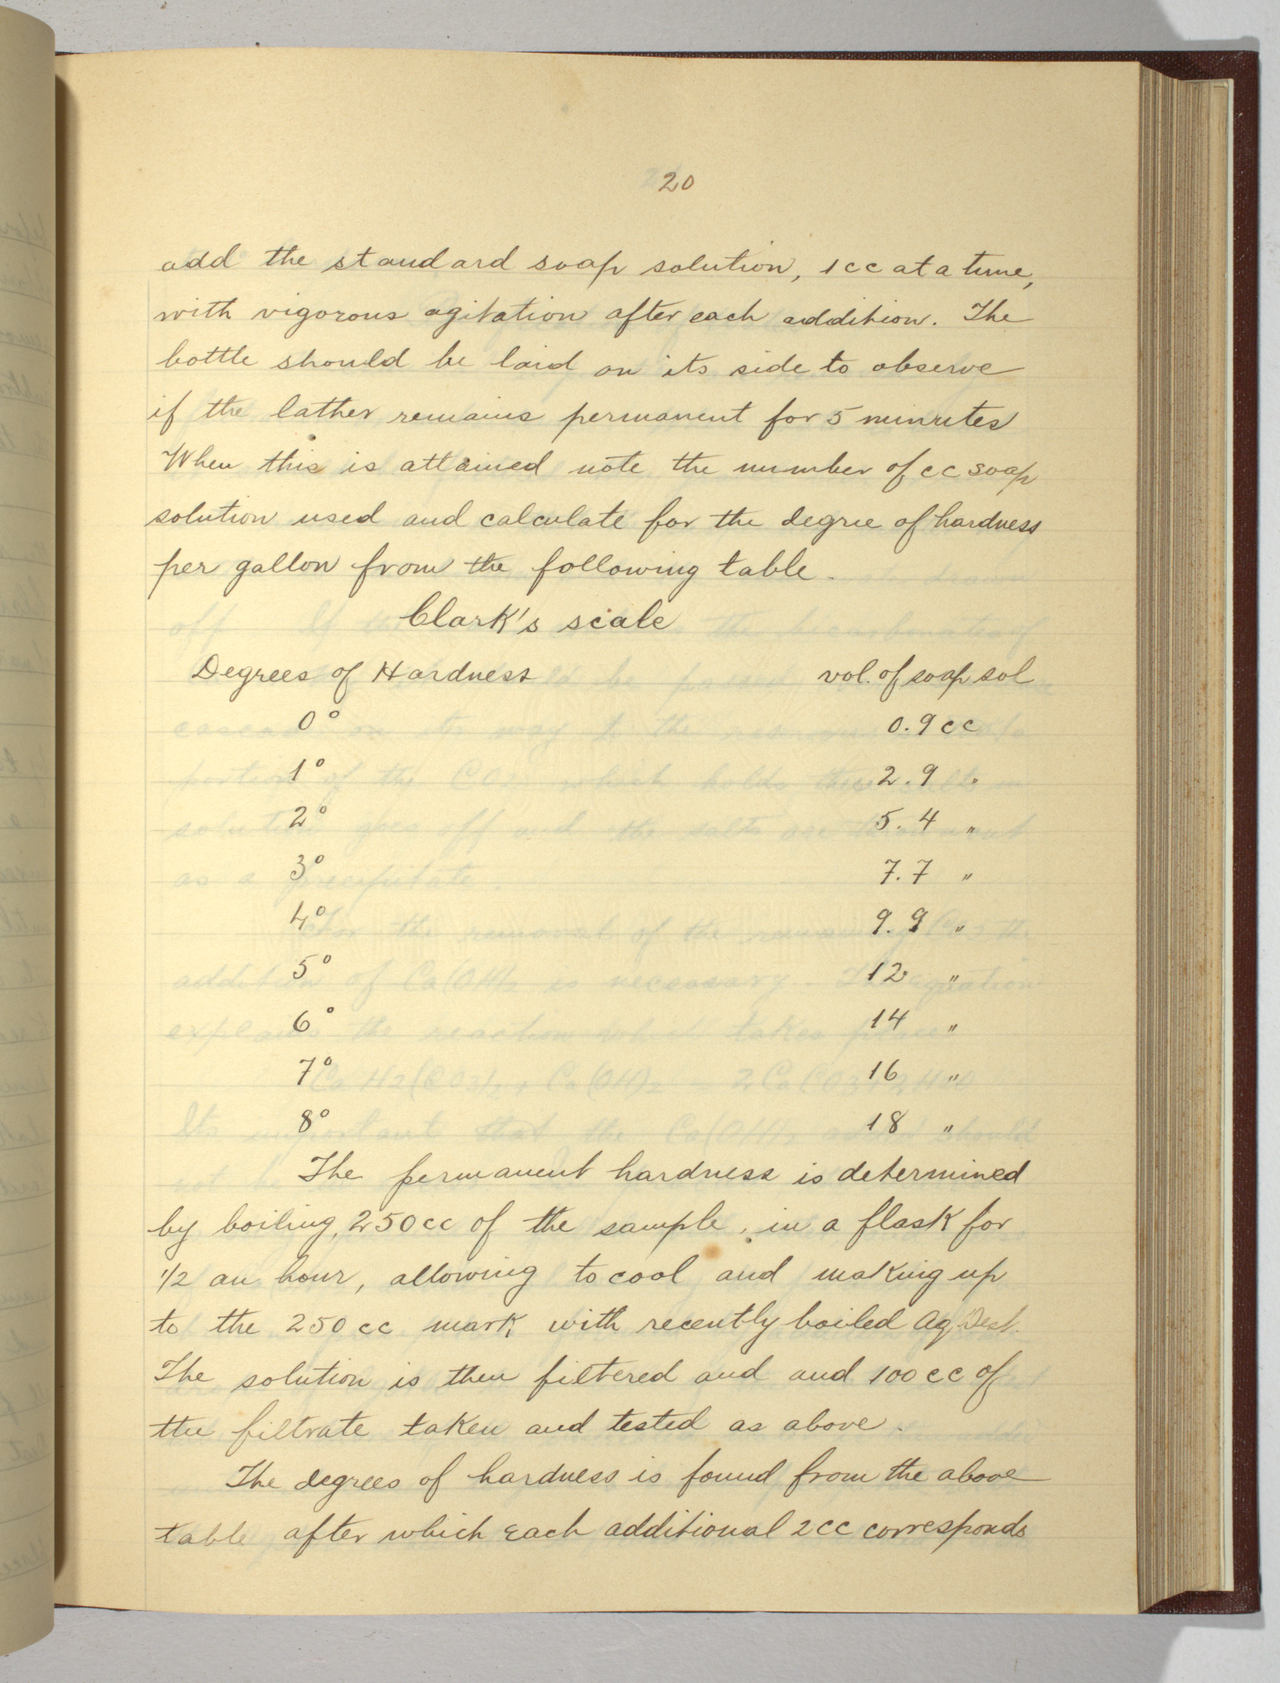 20
add the standard soap solution, 1 cc at a time,
with vigorous agitation after each addition. The
bottle should be laid on its side to observe
if the lather remains permanent for 5 minutes
When this is attained note the number of cc soap
solution used and calculate for the degree of hardness
per gallon from the following table.
Clark's scale
Degrees of Hardness vol. of soap sol
0° 0.9 cc
1° 2.9 "
2° 5.4 "
3° 7.7 "
4° 9.9 "
5° 12 "
6° 14 "
7° 16 "
8° 18 "
The permanent hardness is determined
by boiling, 250 cc of the sample, in a flask for
1/2 an hour, allowing to cool and making up
to the 250 cc mark with recently boiled Aq Dest.
The solution is then filtered and and 100 cc of
the filtrate taken and tested as above.
The degrees of hardness is found from the above
table after which each additional 2 cc corresponds